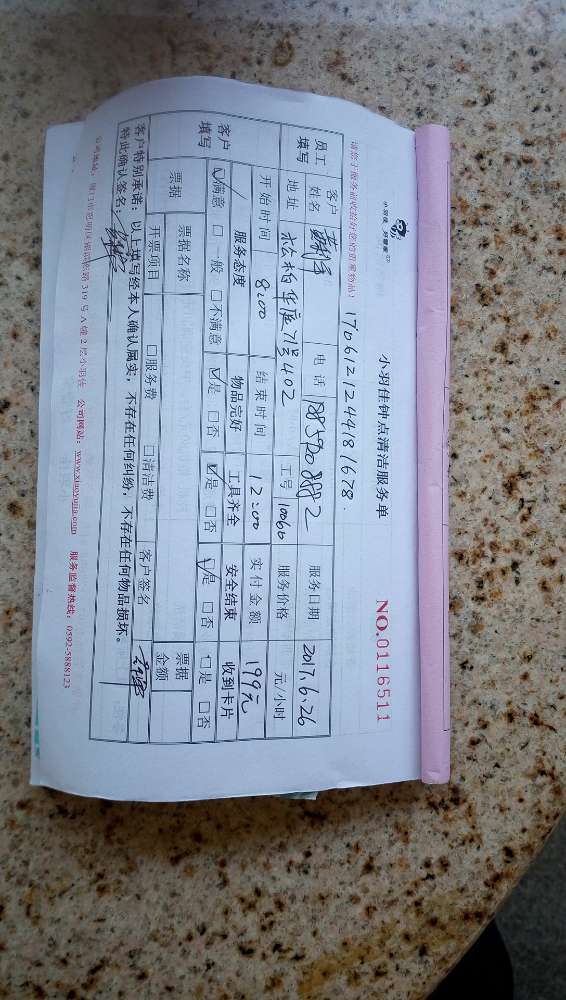 小羽佳 好管家
小羽佳钟点清洁服务单
NO.0116511
请您于服务前收拾好您的贵重物品! 17061212449181678.
员工填写 客户姓名 电话 服务日期 2017.6.26
地址 松柏华庭71号402 工号 10060 服务价格 元/小时
开始时间 8:00 结束时间 12:00 实付金额 199元
客户填写 服务态度 物品完好 工具齐全 安全结束 收到卡片
☑满意 □一般 □不满意 ☑是 □否 ☑是 □否 ☑是 □否 □是 □否
票据 票据名称 票据金额
开票项目 □服务费 □清洁费 客户签名
客户特别承诺:以上填写经本人确认属实,不存在任何纠纷,不存在任何物品损坏。
特此确认签名:
319号A幢2层小羽佳 公司网站:www.xiaoyujia.com 服务监督热线:0592-5888123